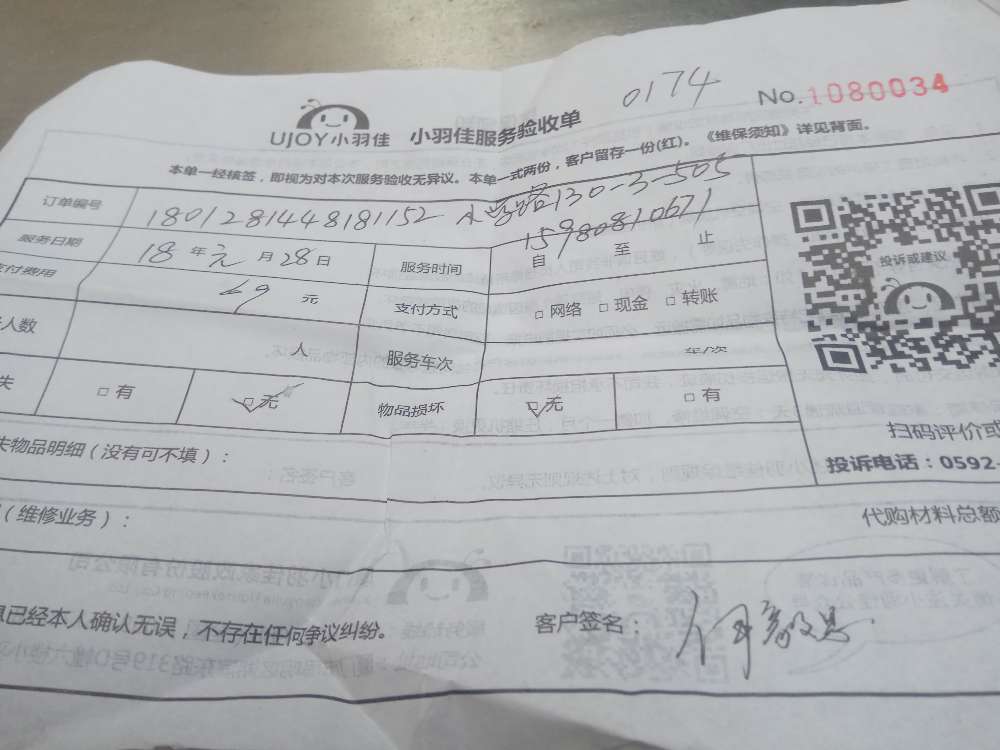 0174
No.1080034
UJOY小羽佳 小羽佳服务验收单
本单一经核签，即视为对本次服务验收无异议。本单一式两份，客户留存一份(红)。《维保须知》详见背面。
订单编号 1801281448181152 130-3-505
15980810671
服务日期 18年元月28日 服务时间 自 至 止
付费用 69元 支付方式 □网络 □现金 □转账
人数 人 服务车次 车次
失 □有 □无 物品损坏 □无 □有
投诉或建议
扫码评价或
投诉电话：0592-
失物品明细（没有可不填）：
（维修业务）： 代购材料总额
息已经本人确认无误，不存在任何争议纠纷。 客户签名：